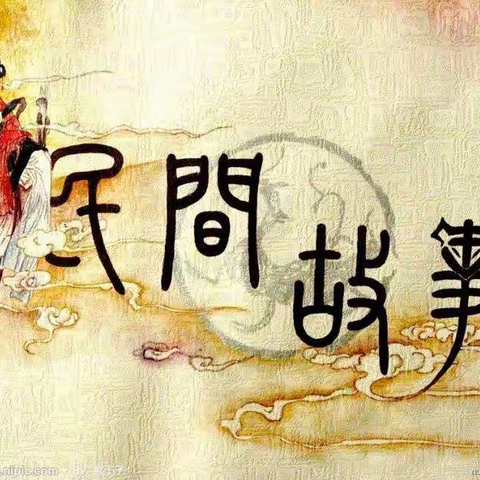 民間故事
nipic.com